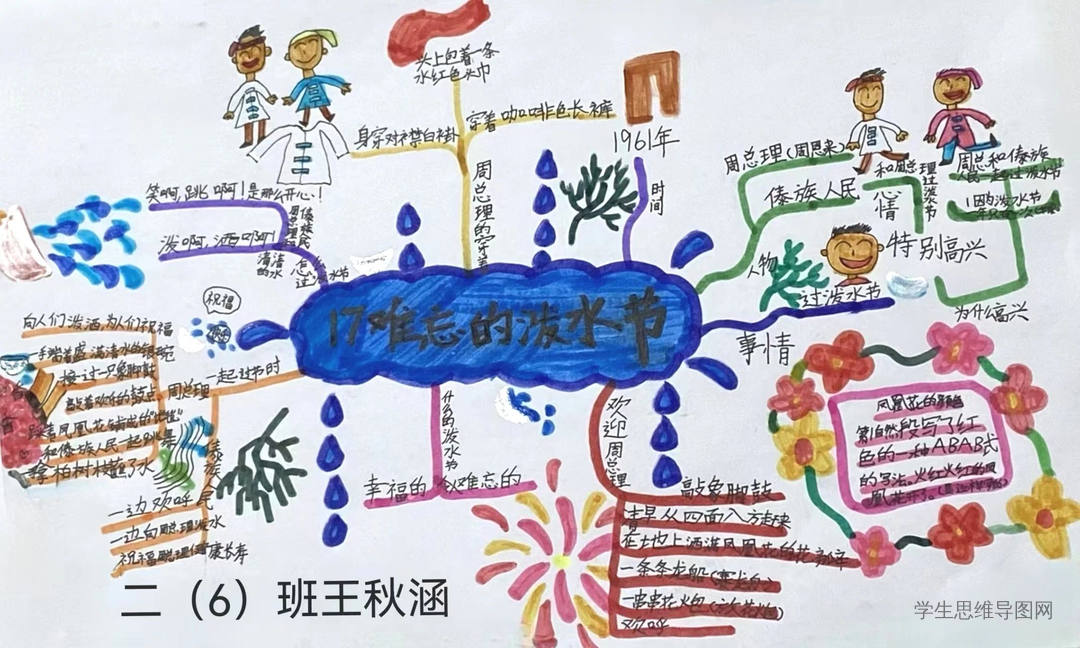 17难忘的泼水节
头上包着一条
水红色头巾
身穿对襟白褂
穿着咖啡色长裤
周总理的穿着
1961年
时间
周总理(周恩来)
傣族人民
人物
和周总理过泼水节
心情
特别高兴
周总和傣族
人民一起过泼水节
为什么高兴
过泼水节
事情
笑啊,跳啊!是那么开心!
泼啊,洒啊!
清清的水
祝福
向人们泼洒,为人们祝福
一手端着盛满清水的银碗
接过一只象脚鼓
敲着欢乐的鼓点
踩着凤凰花铺成的"地毯"
和傣族人民一起跳舞
拿柏树枝蘸了水
周总理
一起过节时
傣族人民
一边欢呼
一边向周总理泼水
祝福周总理健康长寿
什么的泼水节
幸福的
令人难忘的
欢迎周总理
敲象脚鼓
清早从四面八方赶来
在土地上洒满凤凰花的花瓣
一条条龙船(赛龙舟)
一串串花火包(放花火包)
欢呼
凤凰花的颜色
第1自然段写了红
色的一种ABAB式
的写法。火红火红的凤
凰花开了。
二（6）班王秋涵
学生思维导图网